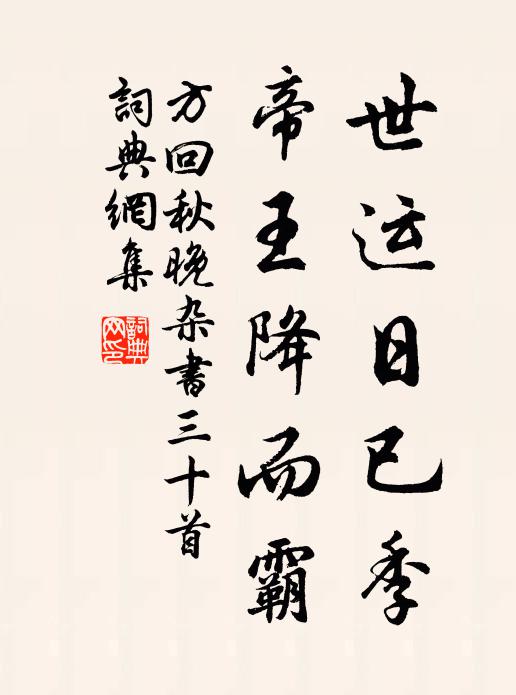 世运日已季
帝王降而霸
方回秋晚杂書三十首
詞典網集
詞典网印